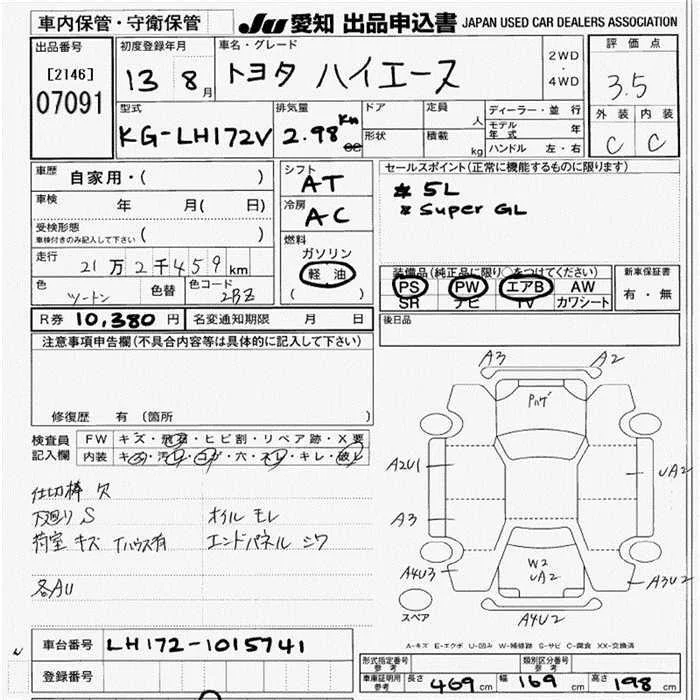 車内保管・守衛保管
JU 愛知 出品申込書 JAPAN USED CAR DEALERS ASSOCIATION
出品番号
[2146]
07091
初度登録年月
13 8月
車名・グレード
トヨタ ハイエース
2WD
・
4WD
評価点
3.5
外装 内装
C C
型式
KG-LH172V
排気量
2.98 Km
cc
ドア
形状
定員 人
積載 kg
ディーラー・並行
モデル年式 年
ハンドル 左・右
車歴
自家用・( )
車検 年 月( 日)
受検形態
車検付きのみ記入して下さい ( )
走行
21万2千459km
色 ツートン 色替 色コード 2BZ
シフト
AT
冷房
AC
燃料
ガソリン
軽油
( )
セールスポイント(正常に機能するものに限ります)
* 5L
* Super GL
装備品(純正品に限り○をつけてください)
PS PW エアB AW
SR ナビ TV カワシート
新車保証書
有・無
R券 10,380 円 名変通知期限 月 日
後日品
注意事項申告欄(不具合内容等は具体的に記入して下さい)
修復歴 有 (箇所 )
検査員記入欄
FW キズ・飛石・ヒビ割・リペア跡・X要
内装 キズ・汚レ・コゲ・穴・スレ・キレ・破レ
仕切棒 欠
下廻り S オイル モレ
荷室 キズ Tハウス有 エンドパネル シワ
各AU
A3 A2
Pハゲ
A2U1
UA2
A3
W2
UA2
A4U3
A3U2
A4U2
スペア
A-キズ E-エクボ U-凹み W-補修跡 S-サビ C-腐食 XX-交換済
車台番号 LH172-1015741
登録番号
形式指定番号
参考
類別区分番号
参考
車庫証明用
参考
長さ 469 cm 幅 169 cm 高さ 198 cm